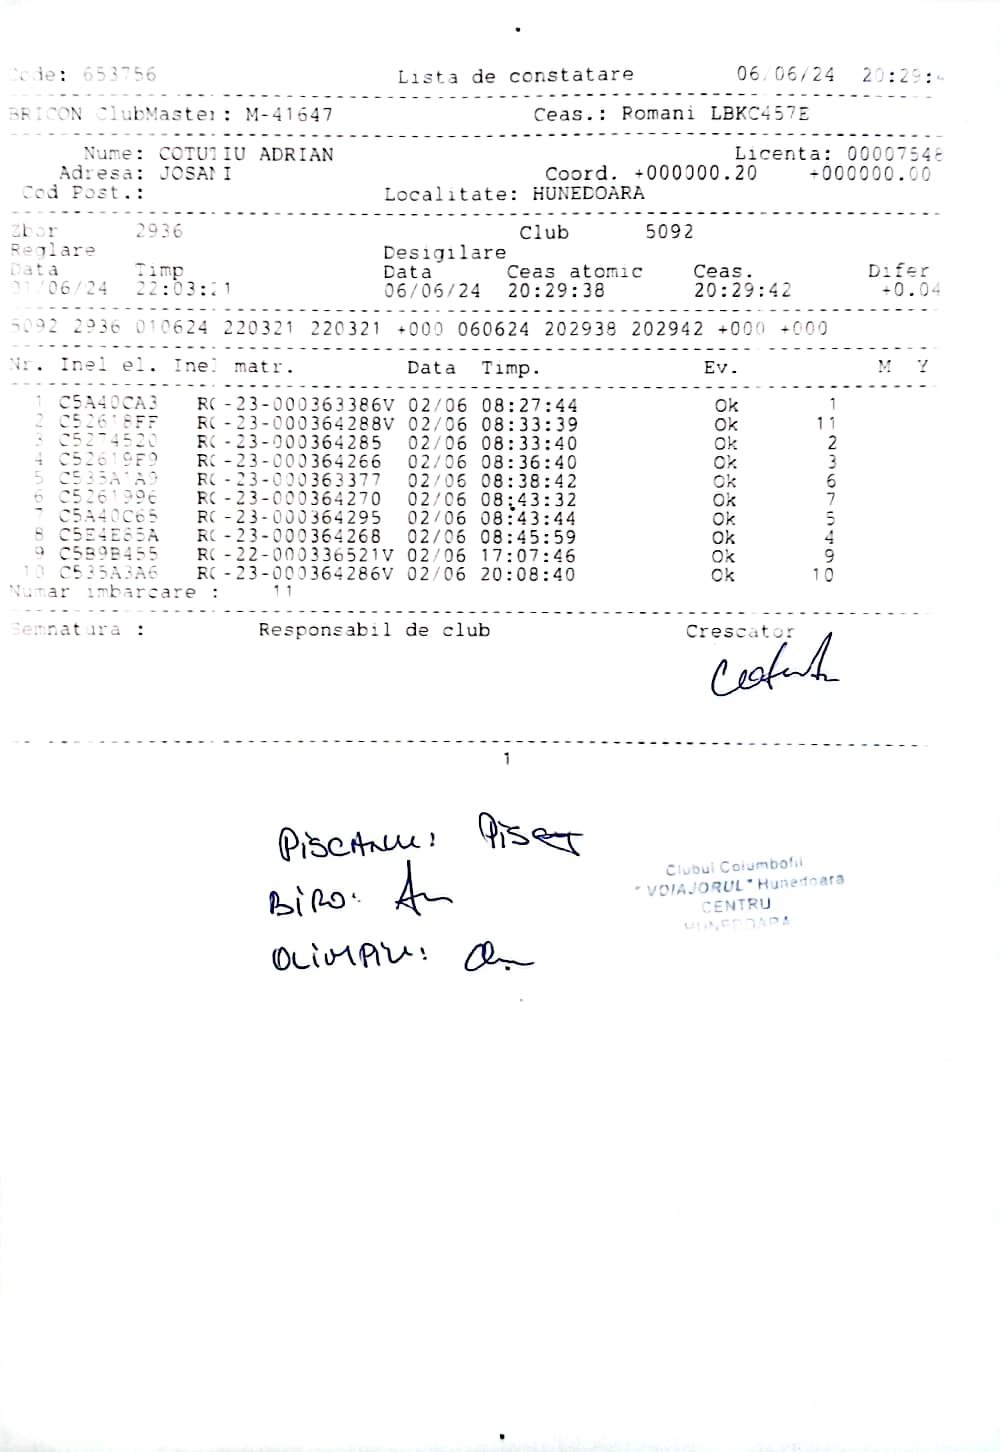 Code: 653756 Lista de constatare 06/06/24 20:29:4
BRICON ClubMaster: M-41647 Ceas.: Romani LBKC457E
Nume: COTUTIU ADRIAN Licenta: 00007548
Adresa: JOSANI Coord. +000000.20 +000000.00
Cod Post.: Localitate: HUNEDOARA
Zbor 2936 Club 5092
Reglare Desigilare
Data Timp Data Ceas atomic Ceas. Difer
01/06/24 22:03:21 06/06/24 20:29:38 20:29:42 +0.04
5092 2936 010624 220321 220321 +000 060624 202938 202942 +000 +000
Nr. Inel el. Inel matr. Data Timp. Ev. M Y
1 C5A40CA3 RO-23-000363386V 02/06 08:27:44 Ok 1
2 C52618FF RO-23-000364288V 02/06 08:33:39 Ok 11
3 C5274520 RO-23-000364285 02/06 08:33:40 Ok 2
4 C52619F9 RO-23-000364266 02/06 08:36:40 Ok 3
5 C535A1A9 RO-23-000363377 02/06 08:38:42 Ok 6
6 C5261996 RO-23-000364270 02/06 08:43:32 Ok 7
7 C5A40C65 RO-23-000364295 02/06 08:43:44 Ok 5
8 C5E4E85A RO-23-000364268 02/06 08:45:59 Ok 4
9 C5B9B455 RO-22-000336521V 02/06 17:07:46 Ok 9
10 C535A3A6 RO-23-000364286V 02/06 20:08:40 Ok 10
Numar imbarcare : 11
Semnatura : Responsabil de club Crescator
1
PISCANU:
BIRO:
OLIMPIU:
Clubul Columbofil
"VOIAJORUL" Hunedoara
CENTRU
HUNEDOARA